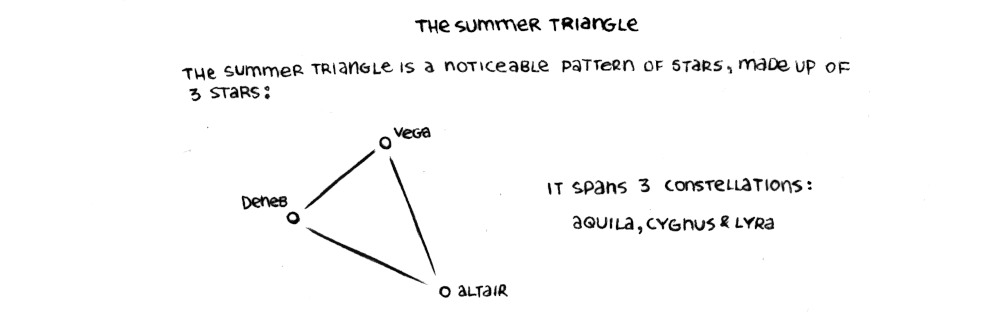 THE SUMMER TRIANGLE
THE SUMMER TRIANGLE IS A NOTICEABLE PATTERN OF STARS, MADE UP OF
3 STARS:
VEGA
DENEB
IT SPANS 3 CONSTELLATIONS:
AQUILA, CYGNUS & LYRA
ALTAIR